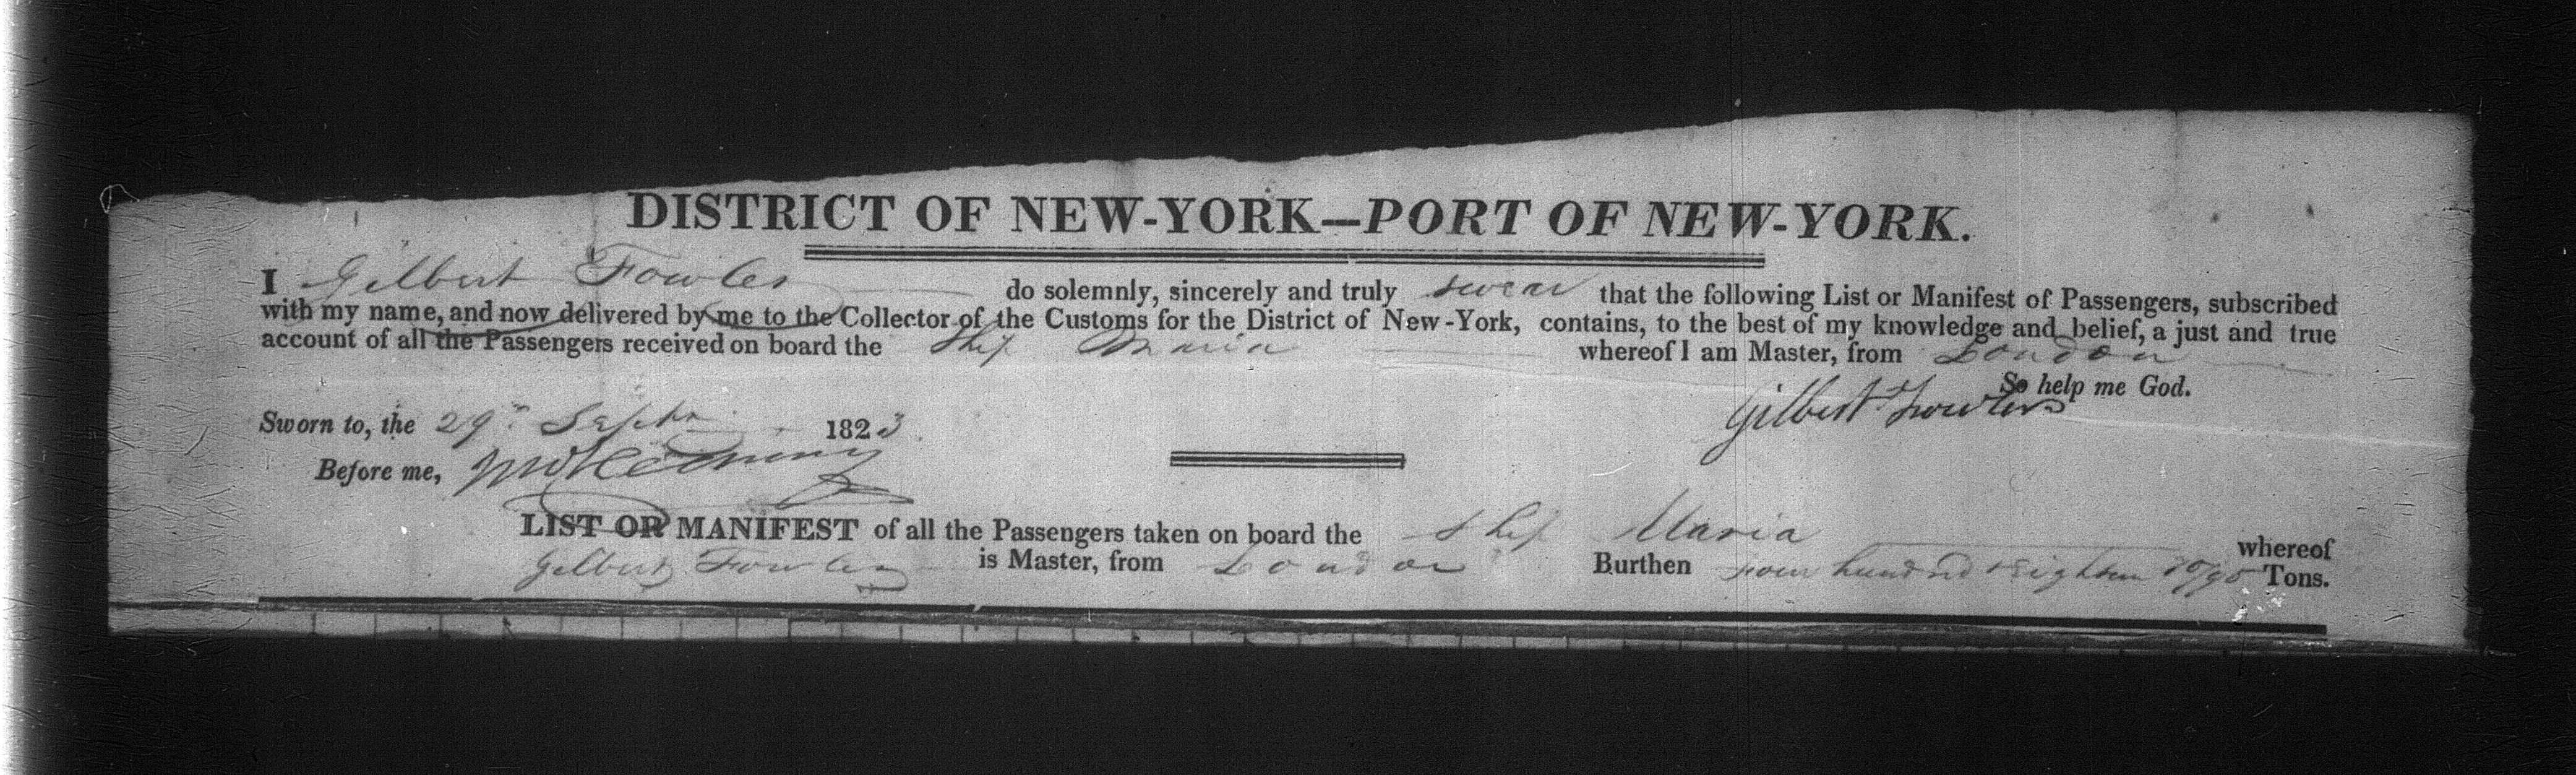 DISTRICT OF NEW-YORK—PORT OF NEW-YORK.
I Gilbert Fowler do solemnly, sincerely and truly swear that the following List or Manifest of Passengers, subscribed
with my name, and now delivered by me to the Collector of the Customs for the District of New-York, contains, to the best of my knowledge and belief, a just and true
account of all the Passengers received on board the Ship Maria whereof I am Master, from London
So help me God.
Gilbert Fowler
Sworn to, the 29th Septr 1823.
Before me,
LIST OR MANIFEST of all the Passengers taken on board the Ship Maria whereof
Gilbert Fowler is Master, from London Burthen Four hundred & Eighteen Tons.